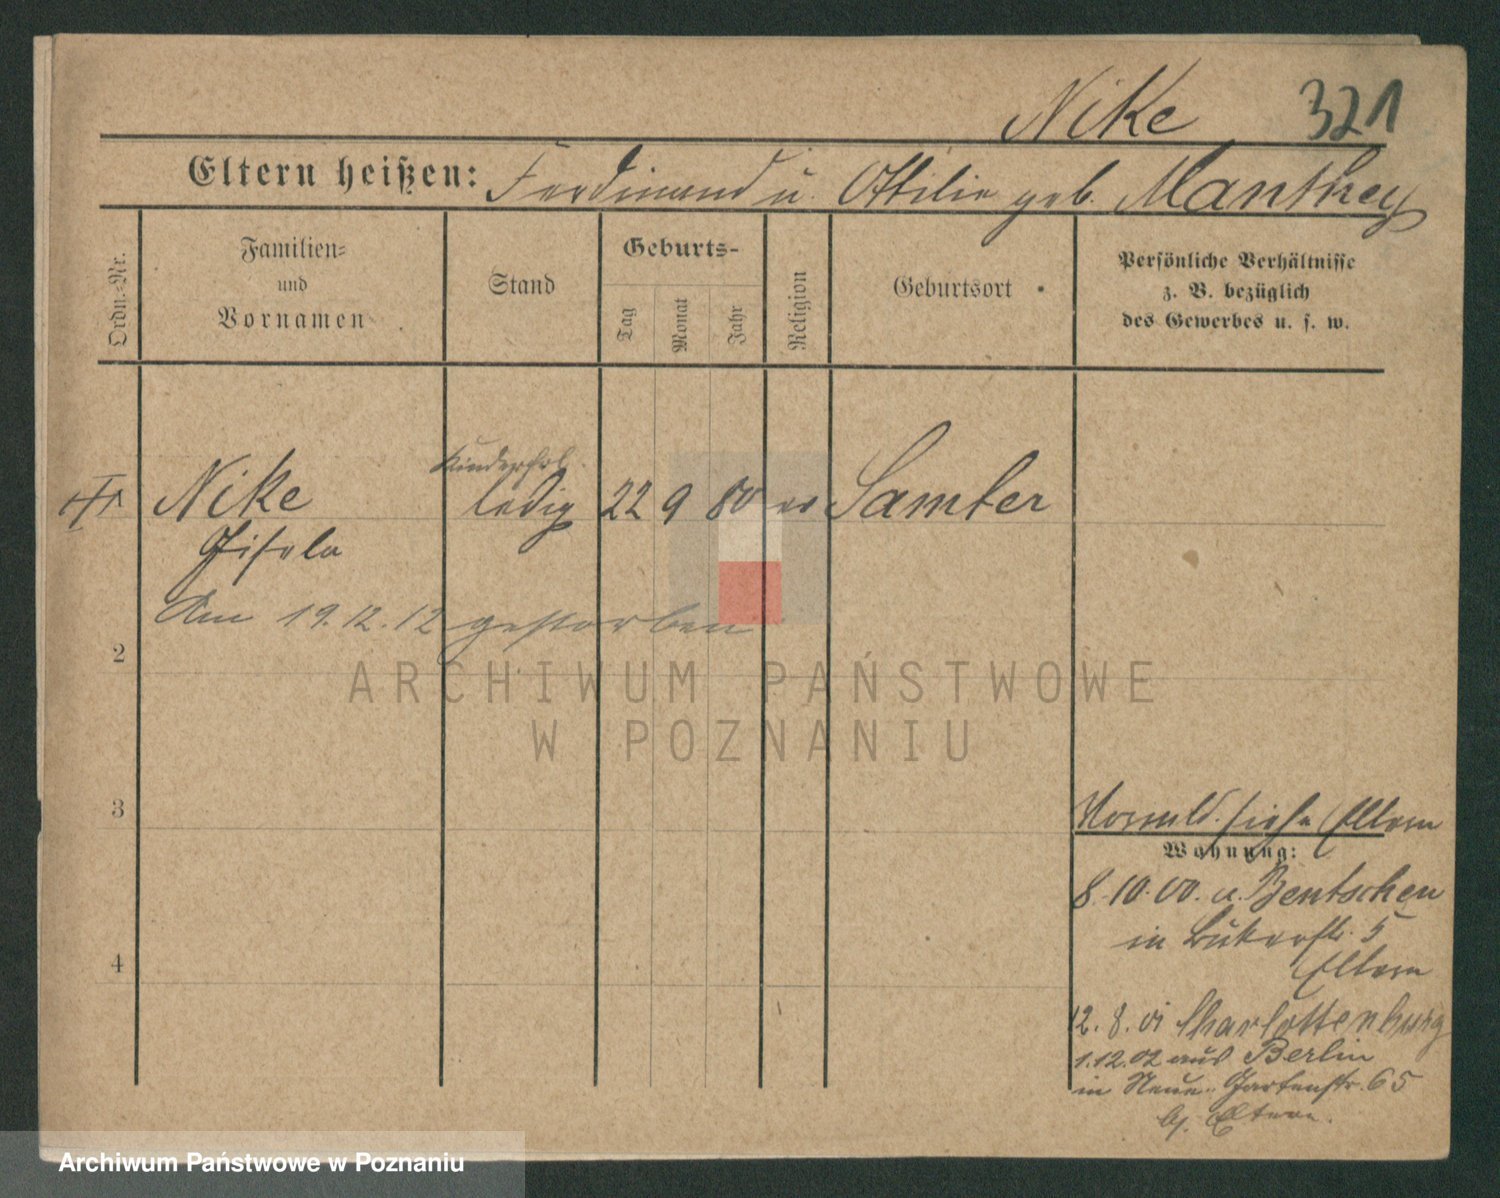 Nike 321
Eltern heißen: Ferdinand u. Ottilie geb. Manthey
Ordn.-Nr.
Familien-
und
Vornamen
Stand
Geburts-
Tag
Monat
Jahr
Religion
Geburtsort
Persönliche Verhältnisse
z. B. bezüglich
des Gewerbes u. s. w.
Kinderfrl.
Nike ledig 22 9 80 ev Samter
Gisela
Am 19.12.12 gestorben
2
ARCHIWUM PAŃSTWOWE
W POZNANIU
3
siehe Eltern
Wohnung:
8.10.00. a. Bentschen
in Bukerstr. 5
4
Eltern
12. 8. 01 Charlottenburg
1.12.02 aus Berlin
in Neue Gartenstr. 65
b. Eltern.
Archiwum Państwowe w Poznaniu